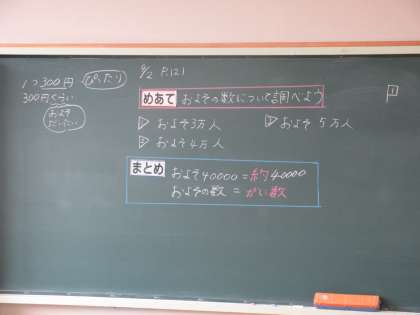 1つ300円 ぴったり
300円ぐらい
およそ
だいたい
9/2 P.121
めあて およその数について調べよう
1 およそ3万人
2 およそ5万人
3 およそ4万人
まとめ およそ40000=約40000
およその数=がい数
1